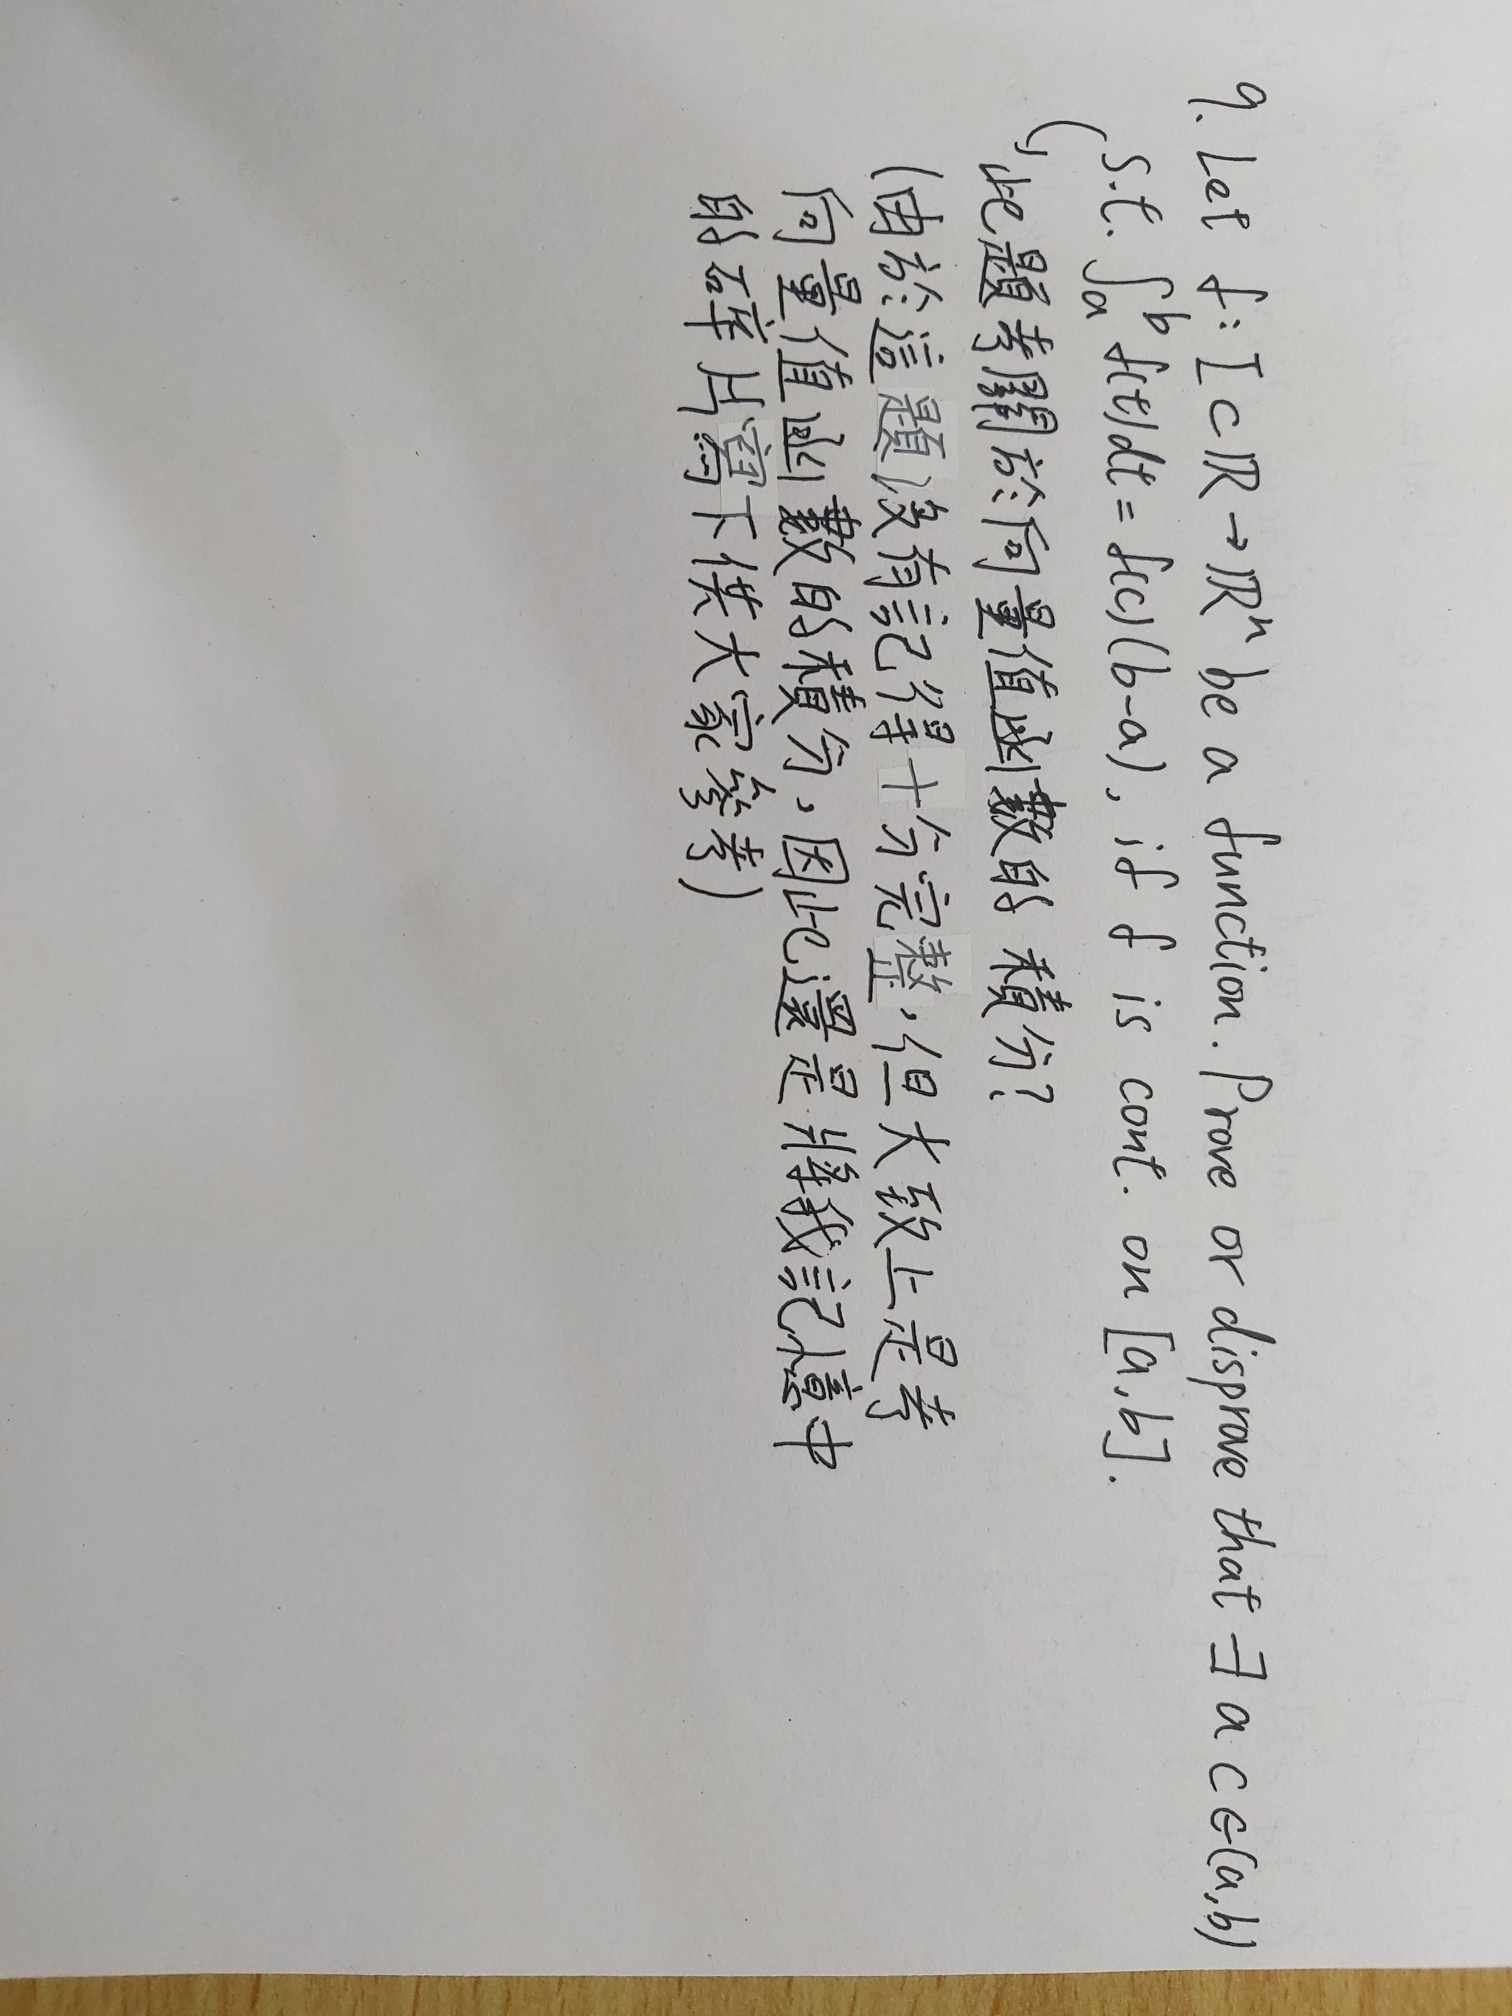 9. Let f: I ⊂ ℝ → ℝⁿ be a function. Prove or disprove that ∃ a c ∈ (a,b)
s.t. ∫ₐᵇ f(t)dt = f(c)(b-a), if f is cont. on [a,b].
此題考關於向量值函數的積分?
(由於這題沒有記得十分完整,但大致上是考
向量值函數的積分,因此還是將我記憶中
的碎片寫下供大家參考)